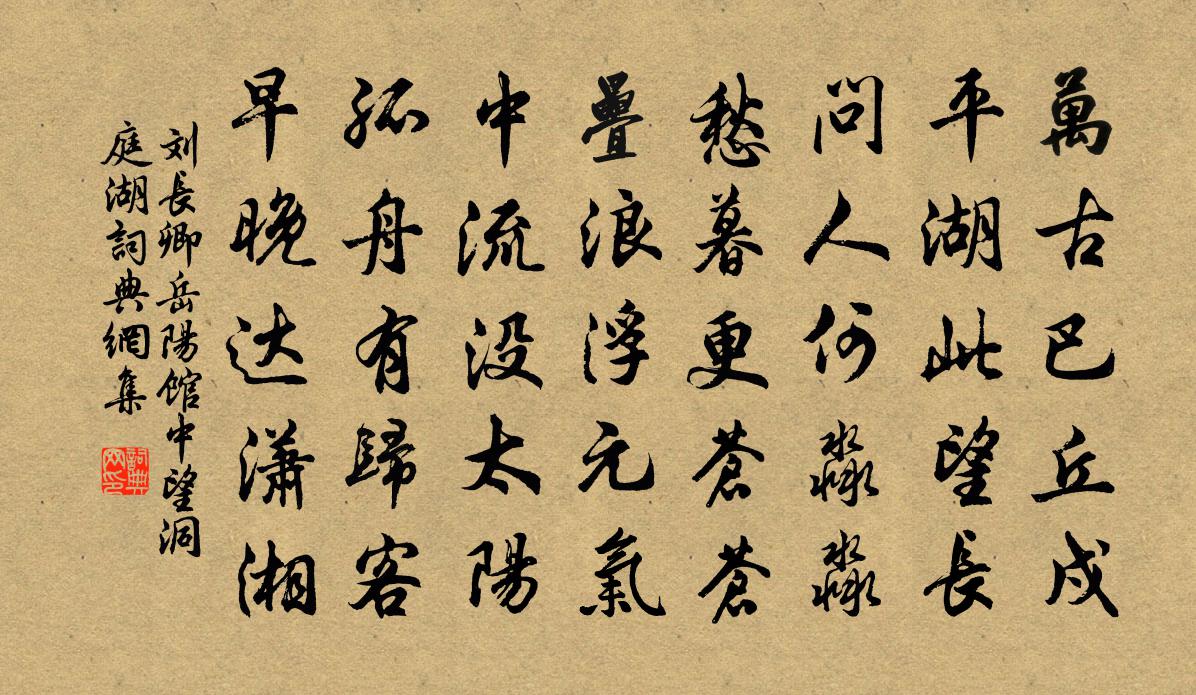 萬古巴丘戍
平湖此望長
問人何淼淼
愁暮更蒼蒼
疊浪浮元氣
中流没太陽
孤舟有歸客
早晚达瀟湘
刘長卿岳陽館中望洞
庭湖詞典網集
詞典
网印